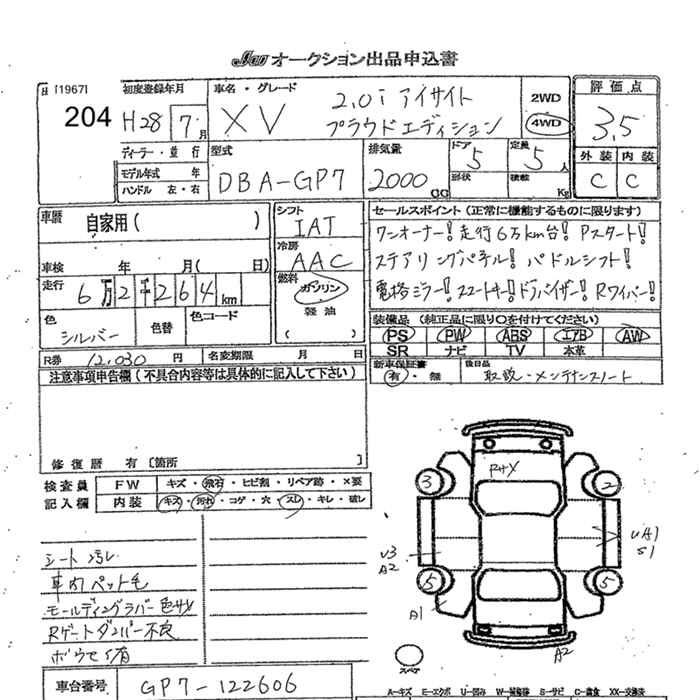 JU オークション出品申込書
[1967]
204
初度登録年月
H28 7月
車名・グレード
XV 2.0i アイサイト
プラウドエディション
2WD
4WD
評価点
3.5
外装 内装
C C
ディーラー・並行
モデル年式 年
ハンドル 左・右
型式
DBA-GP7
排気量
2000 CC
ドア 5
形状
定員 5人
積載 Kg
車歴 自家用( )
車検 年 月( 日)
走行 6万2千264km
色 シルバー
色替
色コード
シフト
IAT
冷房
AAC
燃料
ガソリン
軽油
( )
セールスポイント(正常に機能するものに限ります)
ワンオーナー!走行6万km台!Pスタート!
ステアリングパネル!パドルシフト!
電格ミラー!スマートキー!ドラバイザー!Rワイパー!
装備品(純正品に限り○を付けてください)
PS PW ABS エアB AW
SR ナビ TV 本革
新車保証書
有・無
後日品
取説・メンテナンスノート
R券 12,030円
名変期限 月 日
注意事項申告欄(不具合内容等は具体的に記入して下さい)
修復歴 有〔箇所 〕
検査員記入欄
FW キズ・飛石・ヒビ割・リペア跡・×要
内装 キズ・汚れ・コゲ・穴・スレ・キレ・破レ
シート汚レ
車内ペット毛
モールディングラバー色サメ
Rゲートダンパー不良
3
2
U3
A2
UA1
S1
5
5
A1
A2
スペア
車台番号 GP7-122606
A-キズ E-エクボ U-凹 W-補修跡 S-サビ C-腐食 XX-交換済